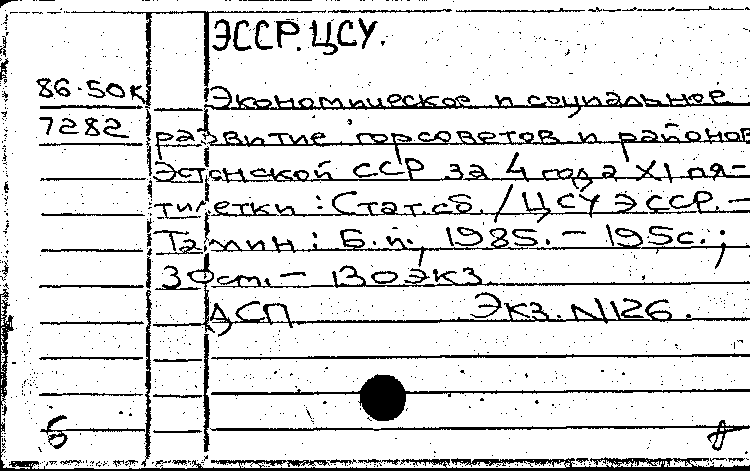 ЭССР. ЦСУ.
86-50к Экономическое и социальное
7282 развитие горсоветов и районов
Эстонской ССР за 4 года XI пя-
тилетки : Стат. сб. / ЦСУ ЭССР. -
Таллин : Б.и., 1985. - 195с. ;
30см. - 130экз.
ДСП Экз. N126.
б